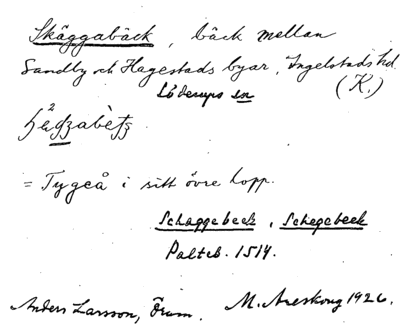 Skäggabäck, bäck mellan
Sandby och Hagestads byar, Ingelstads hd.
Löderups sn (K.)
= Tygeå i sitt övre lopp.
Schaggebeck, Schegebeek
Palteb. 1514.
Anders Larsson, Örum. M. Areskoug 1926.